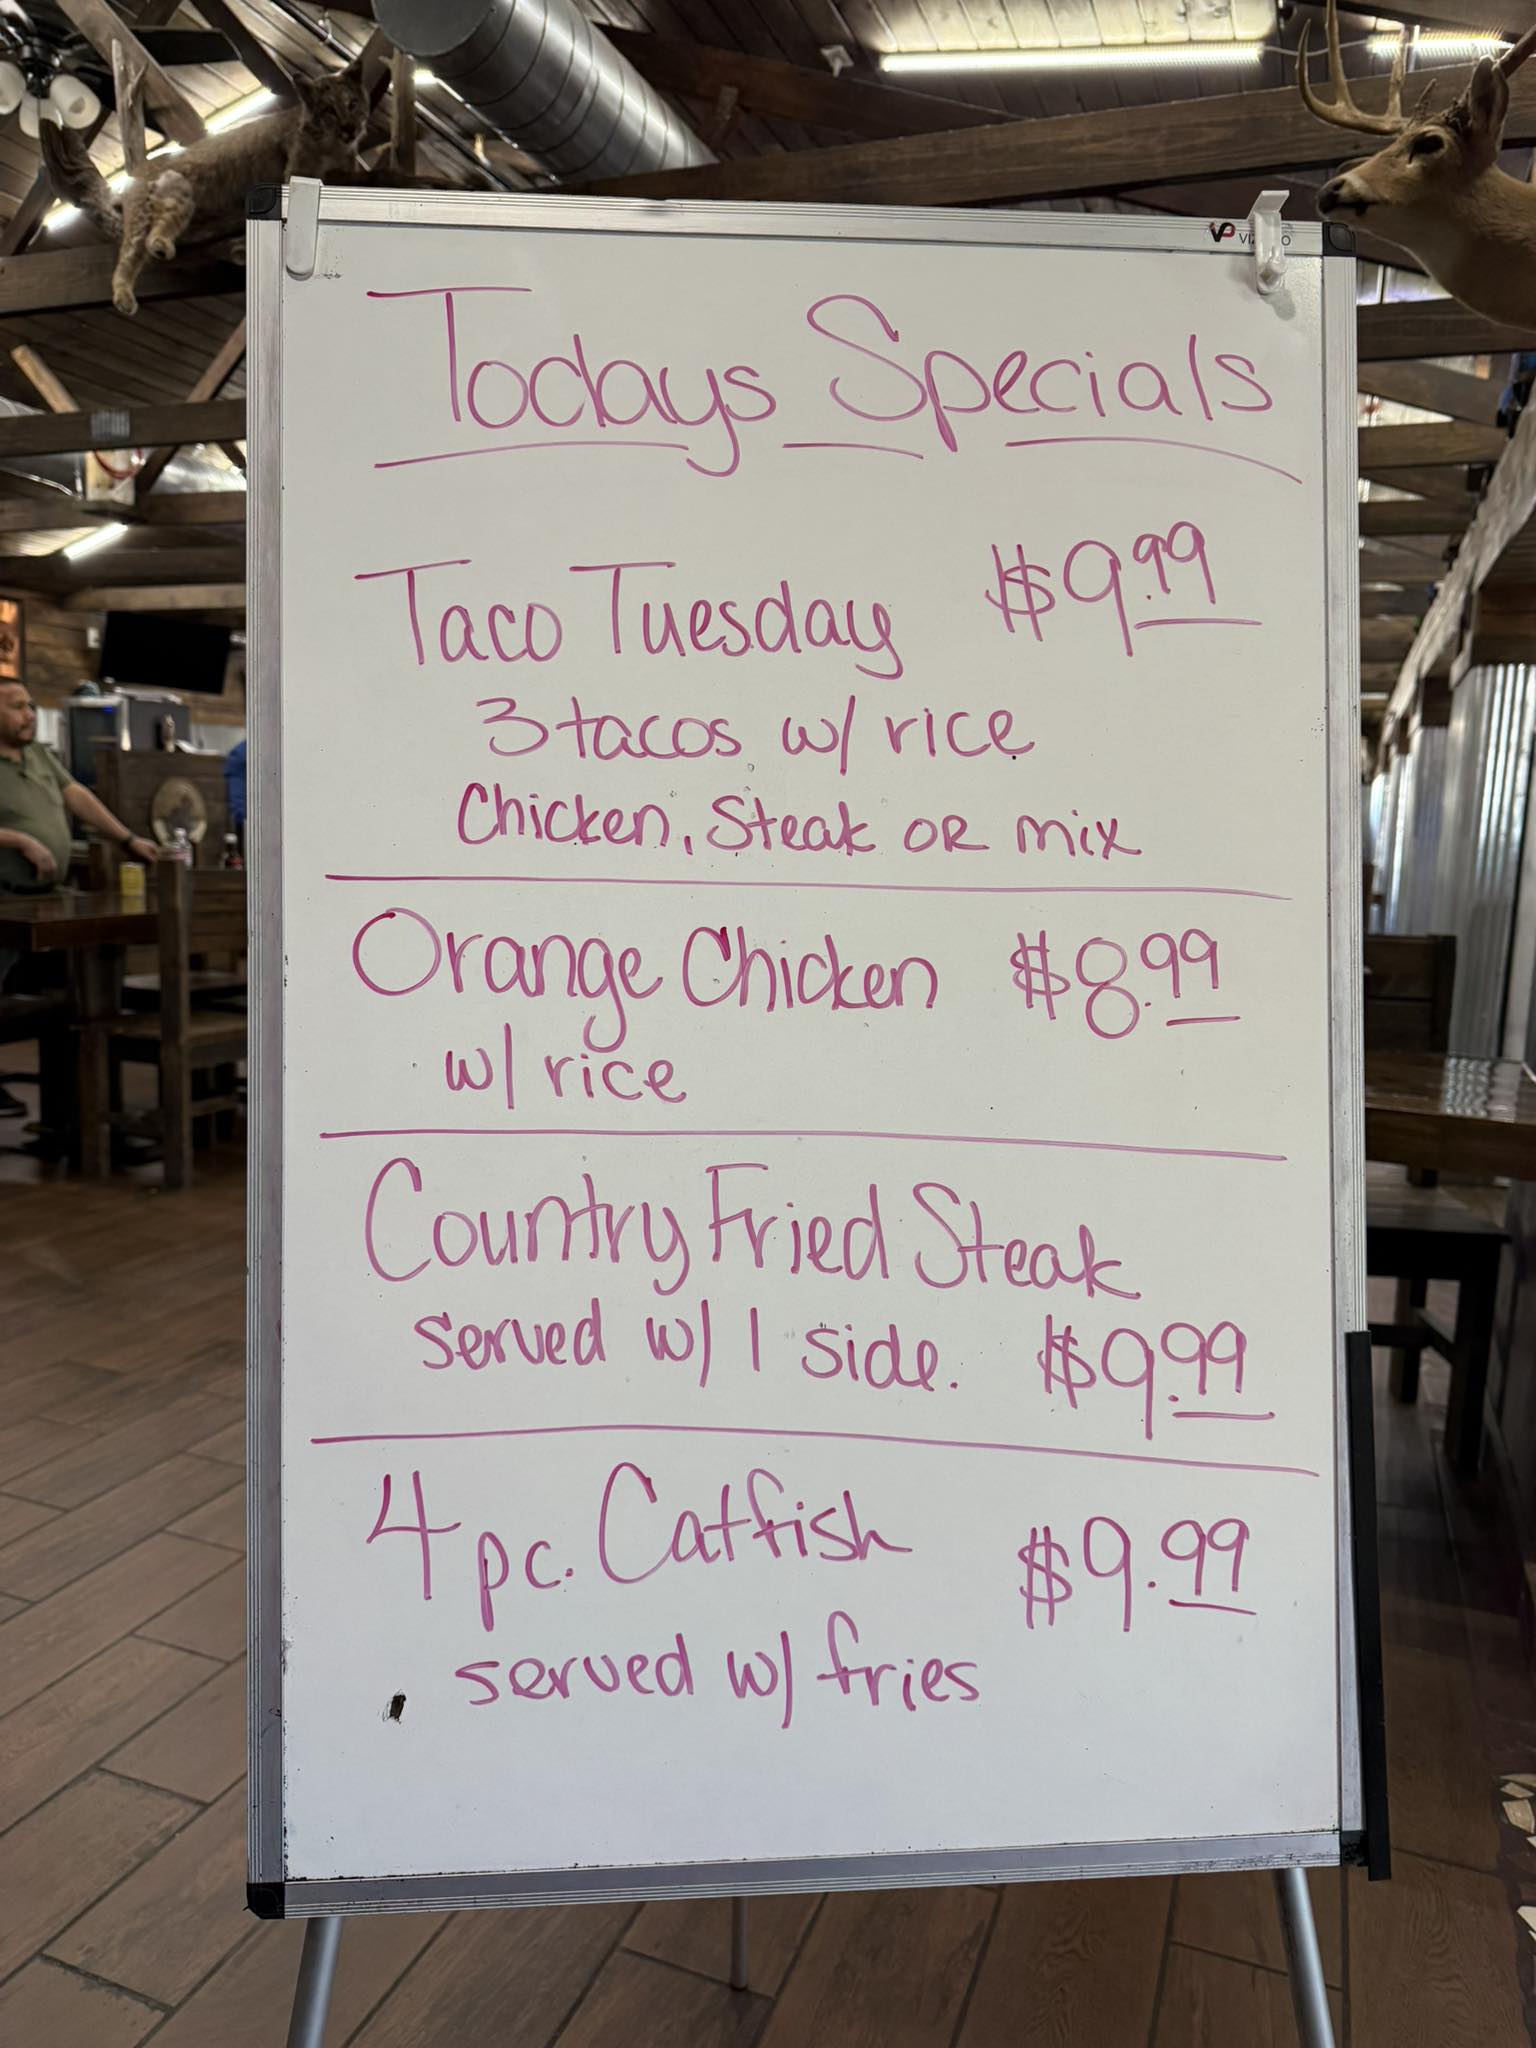 Todays Specials
Taco Tuesday $9.99
3 tacos w/ rice
Chicken, Steak OR mix
Orange Chicken $8.99
w/ rice
Country Fried Steak
served w/ 1 side. $9.99
4 pc. Catfish $9.99
served w/ fries